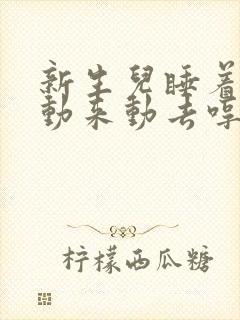 新生兒睡着
動來動去嗥
柠檬西瓜糖